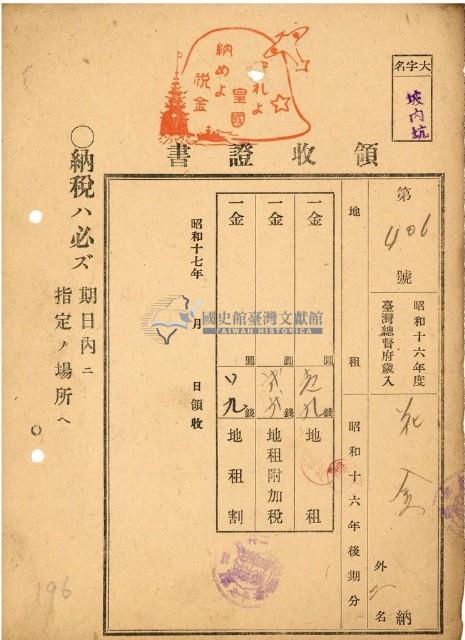 大字名
坡内坑
守れよ
皇國
納めよ
税金
領收證書
第406號
昭和十六年度
臺灣總督府歲入
外
名
納
地租
昭和十六年後期分
一金
圓
錢
地租
一金
圓
錢
地租附加税
一金
圓
九錢
地租割
昭和十七年 月 日領收
◯納税ハ必ズ
期日内ニ
指定ノ場所ヘ
國史館臺灣文獻館
TAIWAN HISTORICA
196